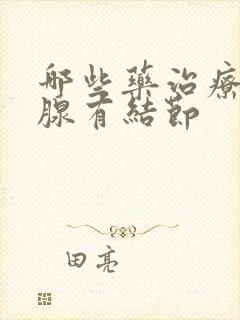 哪些藥治療
腺有結節
田亮